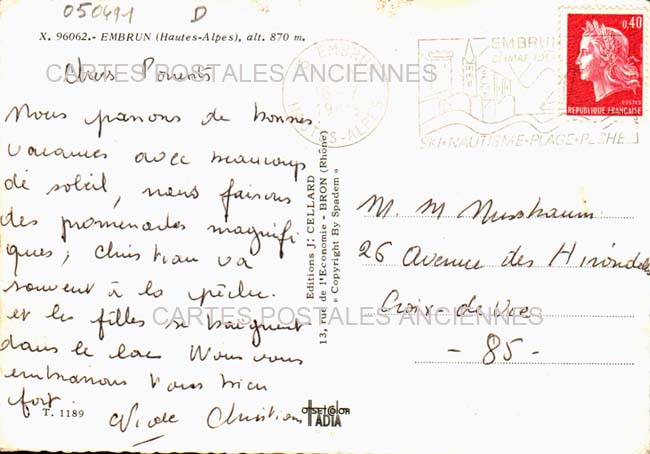 050491 D
X. 96062.- EMBRUN (Hautes-Alpes), alt. 870 m.
CARTES POSTALES ANCIENNES
Chers Parents
Nous passons de bonnes
vacances avec beaucoup
de soleil, nous faisons
des promenades magnifi
ques, Christian va
souvent à la pêche.
et les filles se baignent
dans le lac Nous vous
embrassons tous bien
fort.
Christian
T. 1189
Editions J. CELLARD
13, rue de l'Economie - BRON (Rhône)
« Copyright By Spadem »
OFFSET COLOR
IADIA
EMBRUN
HAUTES-ALPES
EMBRUN
SKI•NAUTISME•PLAGE•PÊCHE
0,40
POSTES
REPUBLIQUE FRANÇAISE
M. M
26 Avenue des Hirondelles
Croix-de-Vie
- 85 -
CARTES POSTALES ANCIENNES